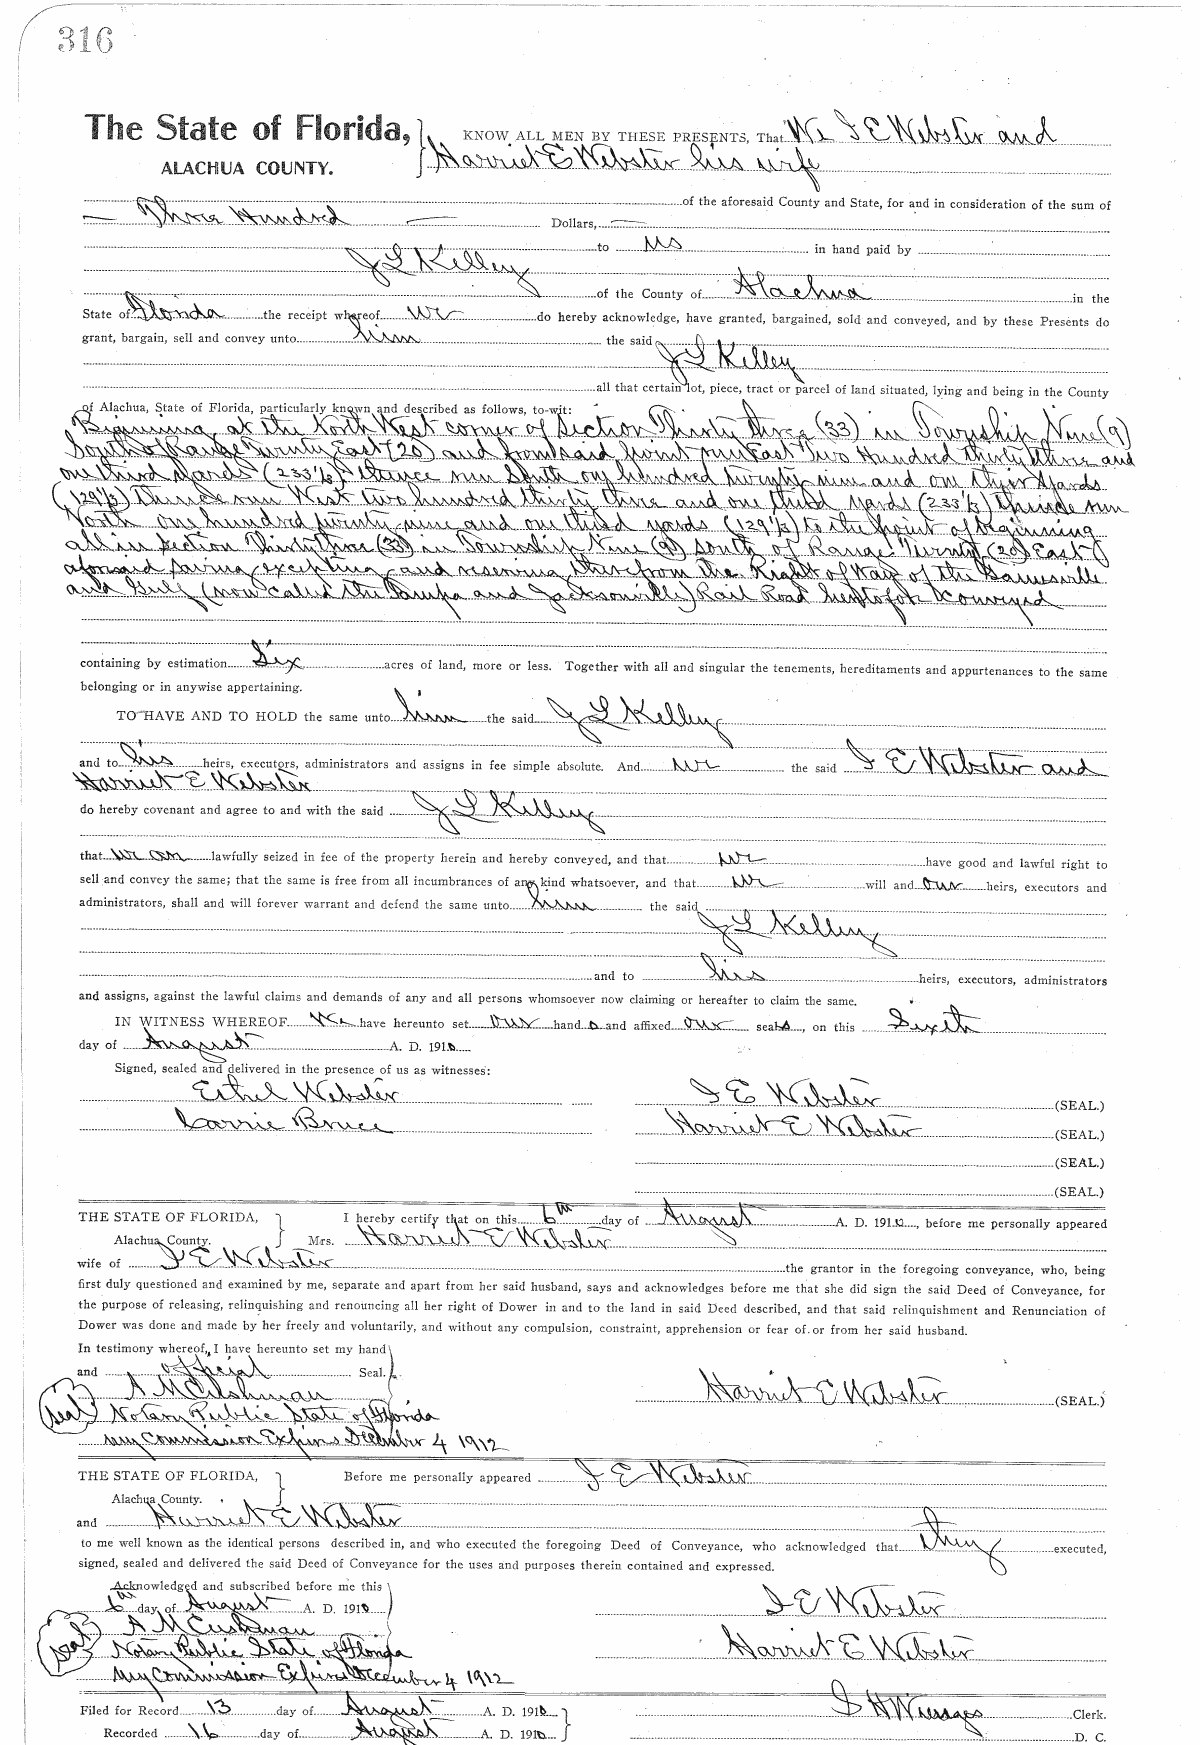 316
The State of Florida, KNOW ALL MEN BY THESE PRESENTS, That We I E Webster and
ALACHUA COUNTY. Harriet E Webster his wife
of the aforesaid County and State, for and in consideration of the sum of
Three Hundred Dollars,
to us in hand paid by
J L Kelley
of the County of Alachua in the
State of Florida the receipt whereof we do hereby acknowledge, have granted, bargained, sold and conveyed, and by these Presents do
grant, bargain, sell and convey unto him the said
J L Kelley
all that certain lot, piece, tract or parcel of land situated, lying and being in the County
of Alachua, State of Florida, particularly known and described as follows, to-wit:
Beginning at the North West corner of Section Thirty three (33) in Township Nine (9)
South of Range Twenty East (20) and from said point run East Two Hundred thirty three and
one third yards (233⅓) thence run South one hundred twenty nine and one third yards
(129⅓) Thence run West two hundred thirty three and one third yards (233⅓) thence run
North one hundred twenty nine and one third yards (129⅓) to the point of beginning
all in Section Thirty three (33) in Township Nine (9) South of Range Twenty (20) East
aforesaid saving excepting and reserving therefrom the Right of Way of the Gainesville
and Gulf (now called the Tampa and Jacksonville) Rail Road heretofore conveyed
containing by estimation Six acres of land, more or less. Together with all and singular the tenements, hereditaments and appurtenances to the same
belonging or in anywise appertaining.
TO HAVE AND TO HOLD the same unto him the said J L Kelley
and to his heirs, executors, administrators and assigns in fee simple absolute. And we the said I E Webster and
Harriet E Webster
do hereby covenant and agree to and with the said J L Kelley
that we are lawfully seized in fee of the property herein and hereby conveyed, and that we have good and lawful right to
sell and convey the same; that the same is free from all incumbrances of any kind whatsoever, and that we will and our heirs, executors and
administrators, shall and will forever warrant and defend the same unto him the said
J L Kelley
and to his heirs, executors, administrators
and assigns, against the lawful claims and demands of any and all persons whomsoever now claiming or hereafter to claim the same.
IN WITNESS WHEREOF We have hereunto set our hands and affixed our seals, on this Sixth
day of August A. D. 1910
Signed, sealed and delivered in the presence of us as witnesses:
Ethel Webster I E Webster (SEAL.)
Carrie Bruce Harriet E Webster (SEAL.)
(SEAL.)
(SEAL.)
THE STATE OF FLORIDA, I hereby certify that on this 6th day of August A. D. 1910, before me personally appeared
Alachua County. Mrs. Harriet E Webster
wife of I E Webster the grantor in the foregoing conveyance, who, being
first duly questioned and examined by me, separate and apart from her said husband, says and acknowledges before me that she did sign the said Deed of Conveyance, for
the purpose of releasing, relinquishing and renouncing all her right of Dower in and to the land in said Deed described, and that said relinquishment and Renunciation of
Dower was done and made by her freely and voluntarily, and without any compulsion, constraint, apprehension or fear of or from her said husband.
In testimony whereof, I have hereunto set my hand
and official Seal.
A M Cushman Harriet E Webster (SEAL.)
(Seal) Notary Public State of Florida
My Commission Expires December 4 1912
THE STATE OF FLORIDA, Before me personally appeared I E Webster
Alachua County.
and Harriet E Webster
to me well known as the identical persons described in, and who executed the foregoing Deed of Conveyance, who acknowledged that they executed,
signed, sealed and delivered the said Deed of Conveyance for the uses and purposes therein contained and expressed.
Acknowledged and subscribed before me this
6th day of August A. D. 1910 I E Webster
A M Cushman
(Seal) Notary Public State of Florida Harriet E Webster
My Commission Expires December 4 1912
Filed for Record 13 day of August A. D. 1910 S H Wienges Clerk.
Recorded 16 day of August A. D. 1910 D. C.